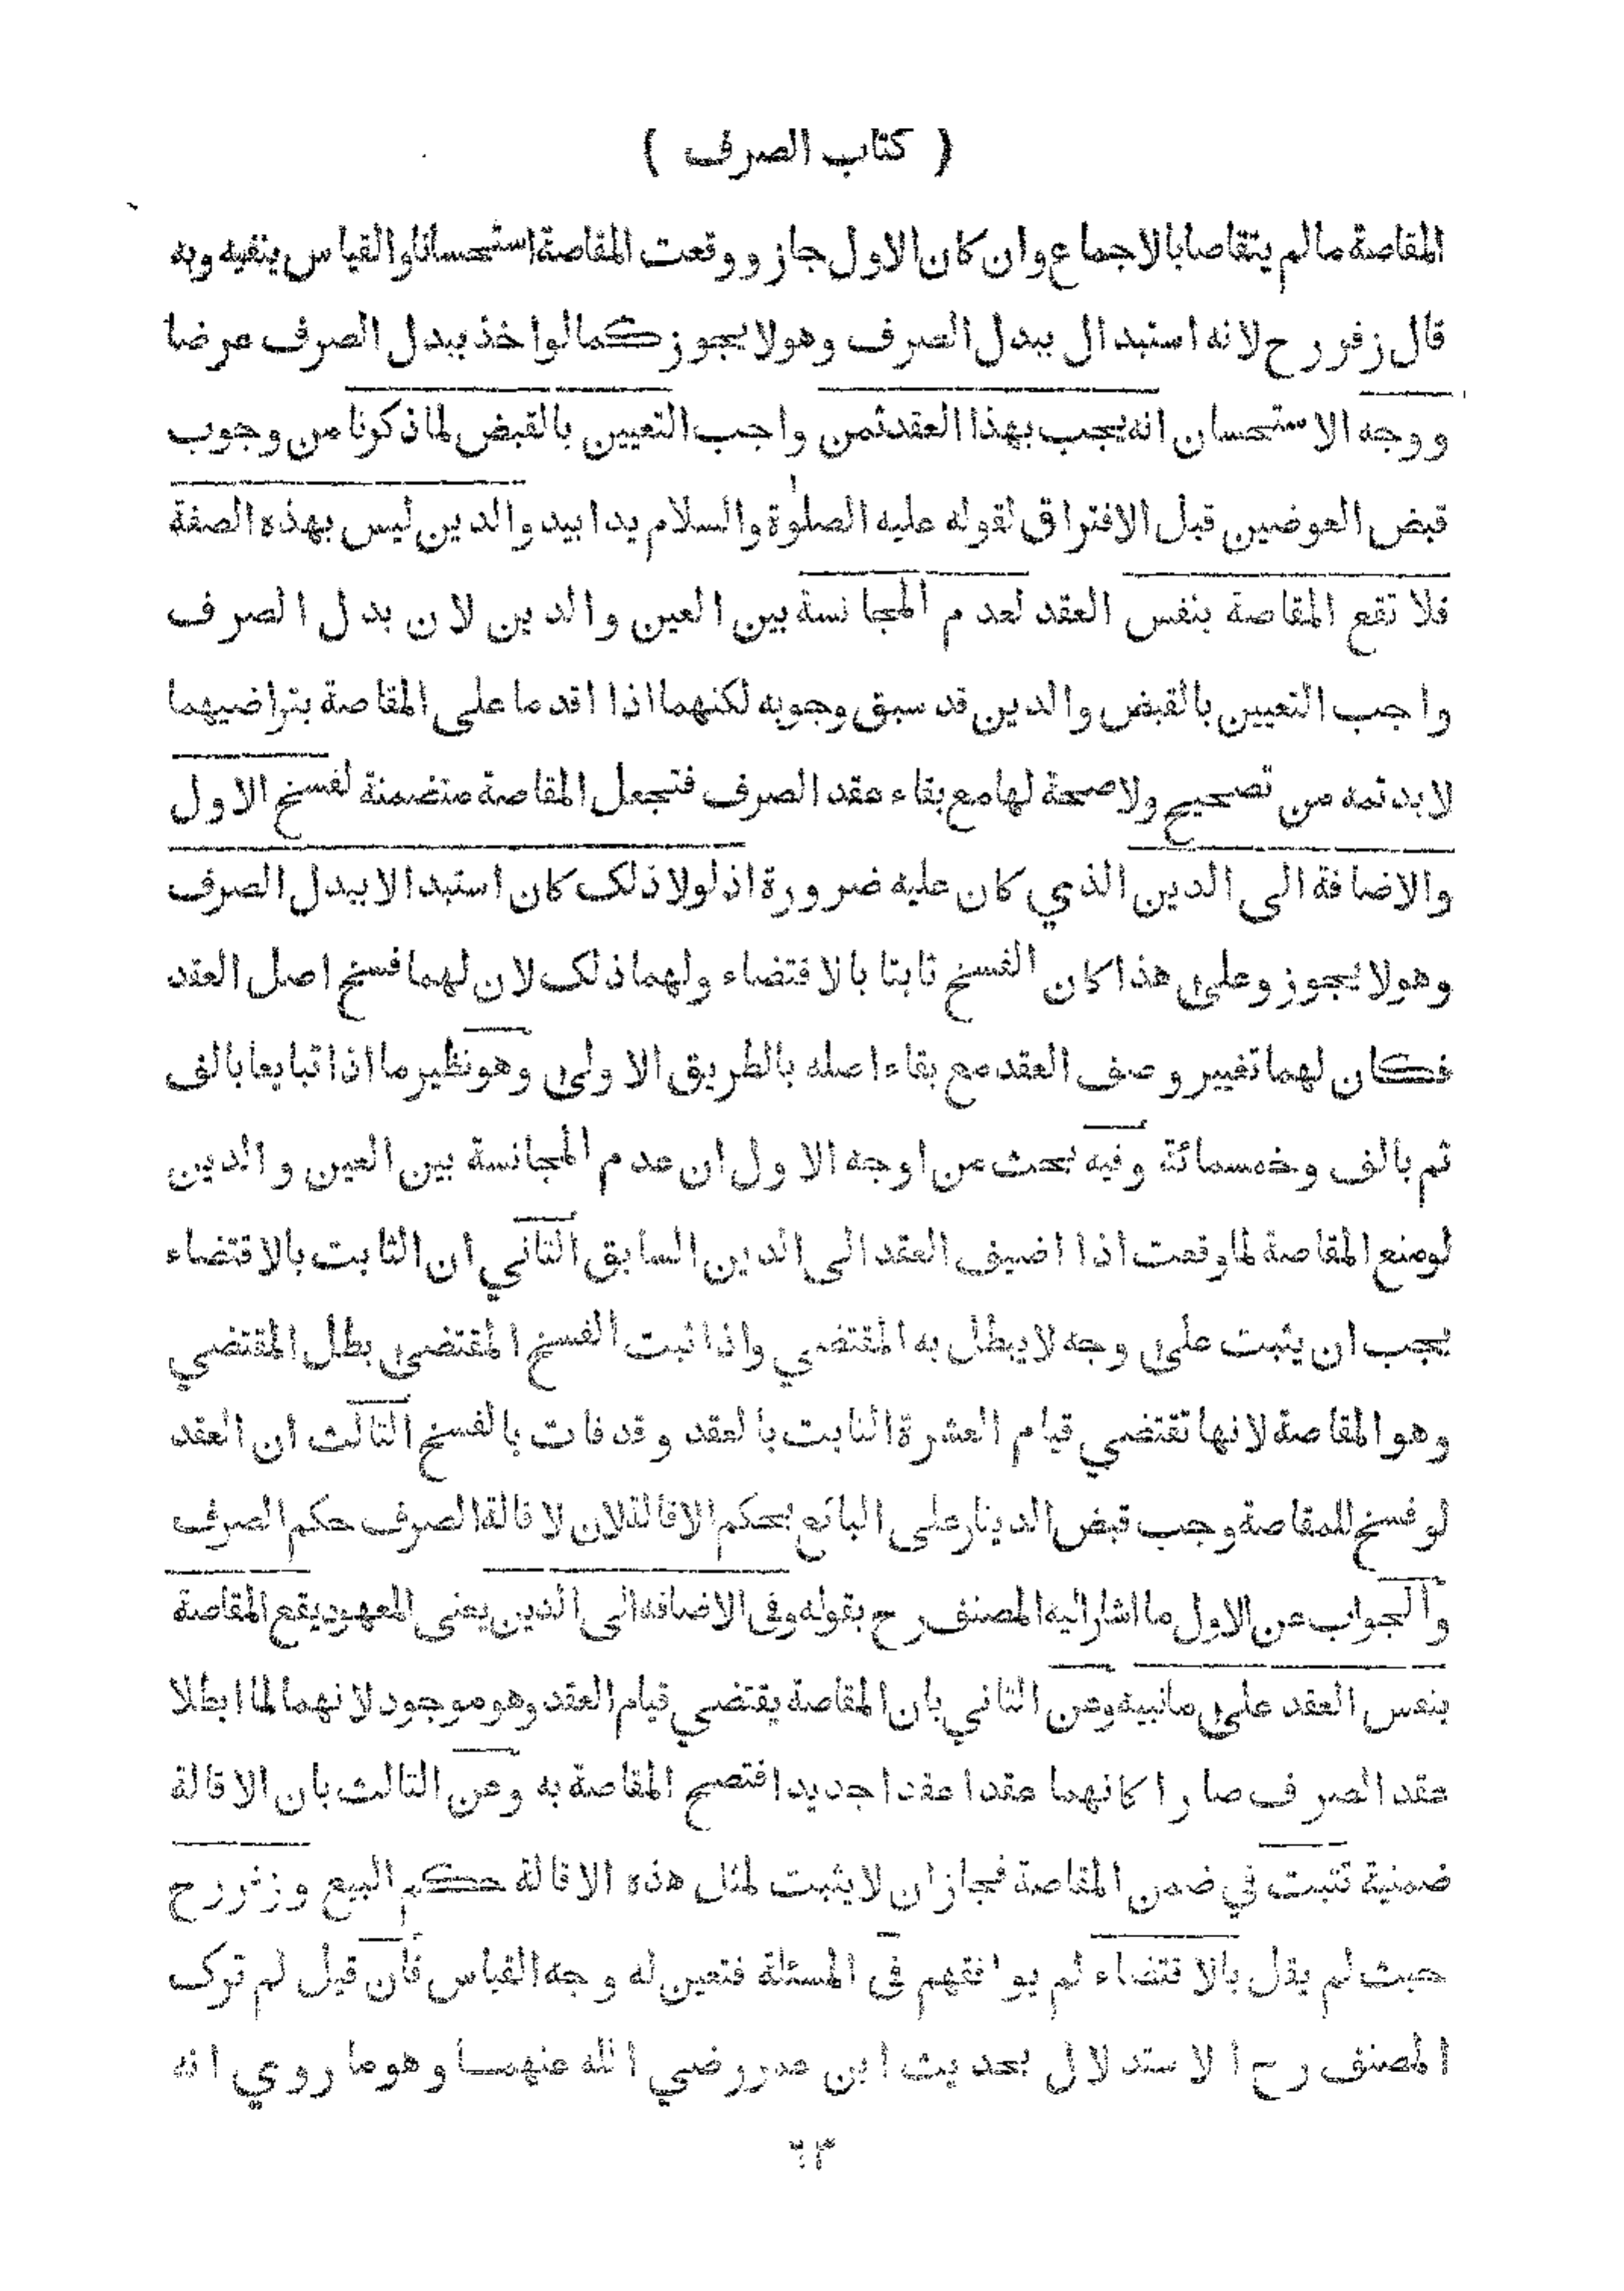 ( كتاب الصرف )
المقاصة مالم يتقاصا بالاجماع وان كان الاول جاز ووقعت المقاصة استحسانا والقياس ينفيه وبه
قال زفر رح لانه استبدال ببدل الصرف وهو لا يجوز كما لو اخذ ببدل الصرف عرضا
ووجه الاستحسان انه يجب بهذا العقد ثمن واجب التعيين بالقبض لما ذكرنا من وجوب
قبض العوضين قبل الافتراق لقوله عليه الصلوة والسلام يدا بيد والدين ليس بهذه الصفة
فلا تقع المقاصة بنفس العقد لعدم المجانسة بين العين والدين لان بدل الصرف
واجب التعيين بالقبض والدين قد سبق وجوبه لكنهما اذا اقدما على المقاصة بتراضيهما
لا بد ثمه من تصحيح ولا صحة لها مع بقاء عقد الصرف فتجعل المقاصة متضمنة لفسخ الاول
والاضافة الى الدين الذي كان عليه ضرورة اذ لولا ذلك كان استبدالا ببدل الصرف
وهو لا يجوز وعلى هذا كان الفسخ ثابتا بالاقتضاء ولهما ذلك لان لهما فسخ اصل العقد
فكان لهما تغيير وصف العقد مع بقاء اصله بالطريق الاولى وهو نظير ما اذا تبايعا بالف
ثم بالف وخمسمائة وفيه بحث من اوجه الاول ان عدم المجانسة بين العين والدين
لو منع المقاصة لما وقعت اذا اضيف العقد الى الدين السابق الثاني ان الثابت بالاقتضاء
يجب ان يثبت على وجه لا يبطل به المقتضي واذا ثبت الفسخ المقتضى بطل المقتضي
وهو المقاصة لانها تقتضي قيام العشرة الثابت بالعقد وقد فات بالفسخ الثالث ان العقد
لو فسخ للمقاصة وجب قبض الدينار على البائع بحكم الاقالة لان لاقالة الصرف حكم الصرف
والجواب عن الاول ما اشار اليه المصنف رح بقوله وفى الاضافة الى الدين يعنى المعهود يقع المقاصة
بنفس العقد على ما نبيه وعن الثاني بان المقاصة يقتضي قيام العقد وهو موجود لانهما لما ابطلا
عقد الصرف صارا كانهما عقدا عقدا جديدا فتصح المقاصة به وعن الثالث بان الاقالة
ضمنية تثبت في ضمن المقاصة فجاز ان لا يثبت لمثل هذه الاقالة حكم البيع وزفر رح
حيث لم يقل بالاقتضاء لم يوافقهم فى المسئلة فتعين له وجه القياس فان قيل لم ترك
المصنف رح الاستدلال بحديث ابن عمر رضي الله عنهما وهو ما روي انه